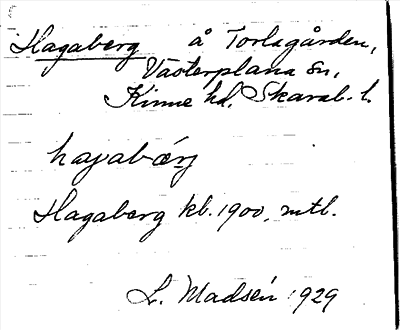 Hagaberg å Torlagården,
Västerplana sn,
Kinne hd, Skarab. l.
hagabærj
Hagaberg kb. 1900, mtl.
L. Madsén 1929